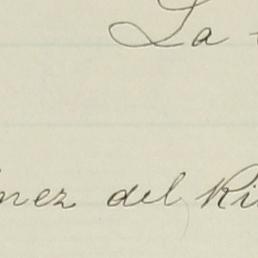 La
nez del Ri